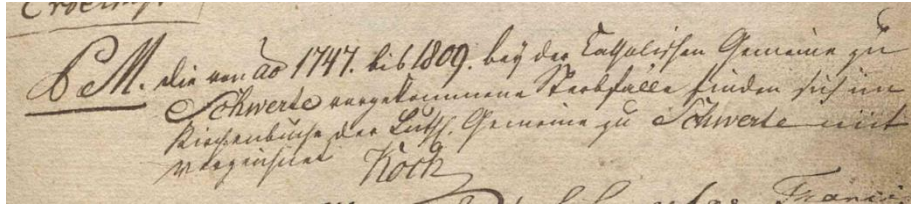 P. M. die von ao 1747. bis 1809. bey der Catholischen Gemeine zu
Schwerte vorgekommene Sterbfälle finden sich im
Kirchenbuche der Luth. Gemeine zu Schwerte mit
verzeichnet Koch
Francis